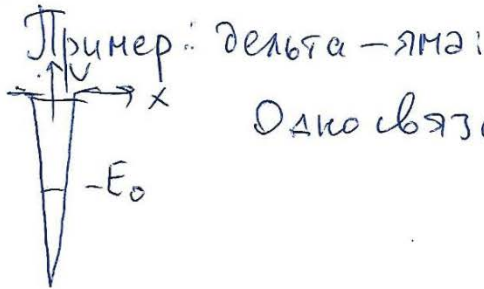 Пример: дельта-яма:
U
x
Одно связ
-E₀